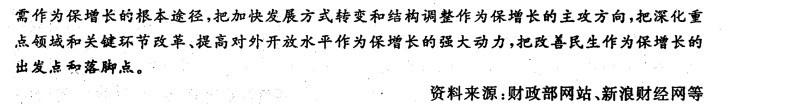 需作为保增长的根本途径,把加快发展方式转变和结构调整作为保增长的主攻方向,把深化重
点领域和关键环节改革、提高对外开放水平作为保增长的强大动力,把改善民生作为保增长的
出发点和落脚点。
资料来源:财政部网站、新浪财经网等